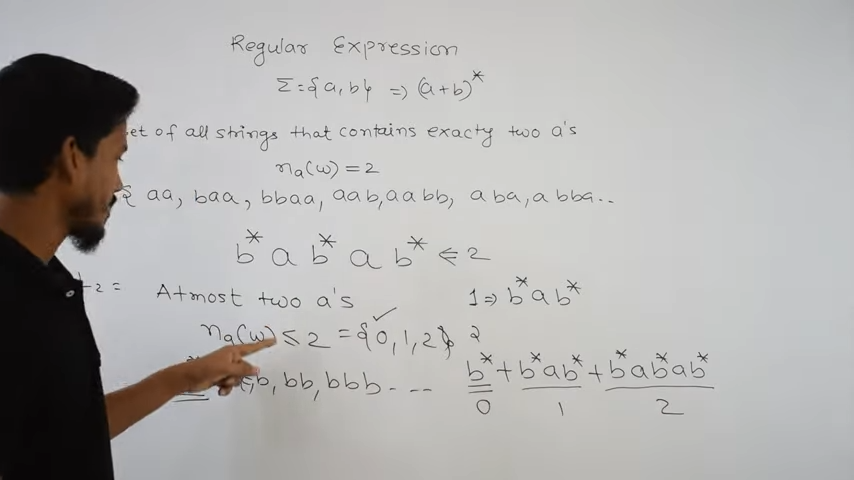 Regular Expression
Σ={a,b} => (a+b)*
et of all strings that contains exacty two a's
na(w)=2
{ aa, baa, bbaa, aab, aabb, aba, abba..
b* a b* a b* <= 2
t2 =
Atmost two a's 1=> b* a b*
na(w) ≤ 2 = {0,1,2} ✓ 2
,b, bb, bbb - - -- b* + b* a b* + b* a b* a b*
0 1 2